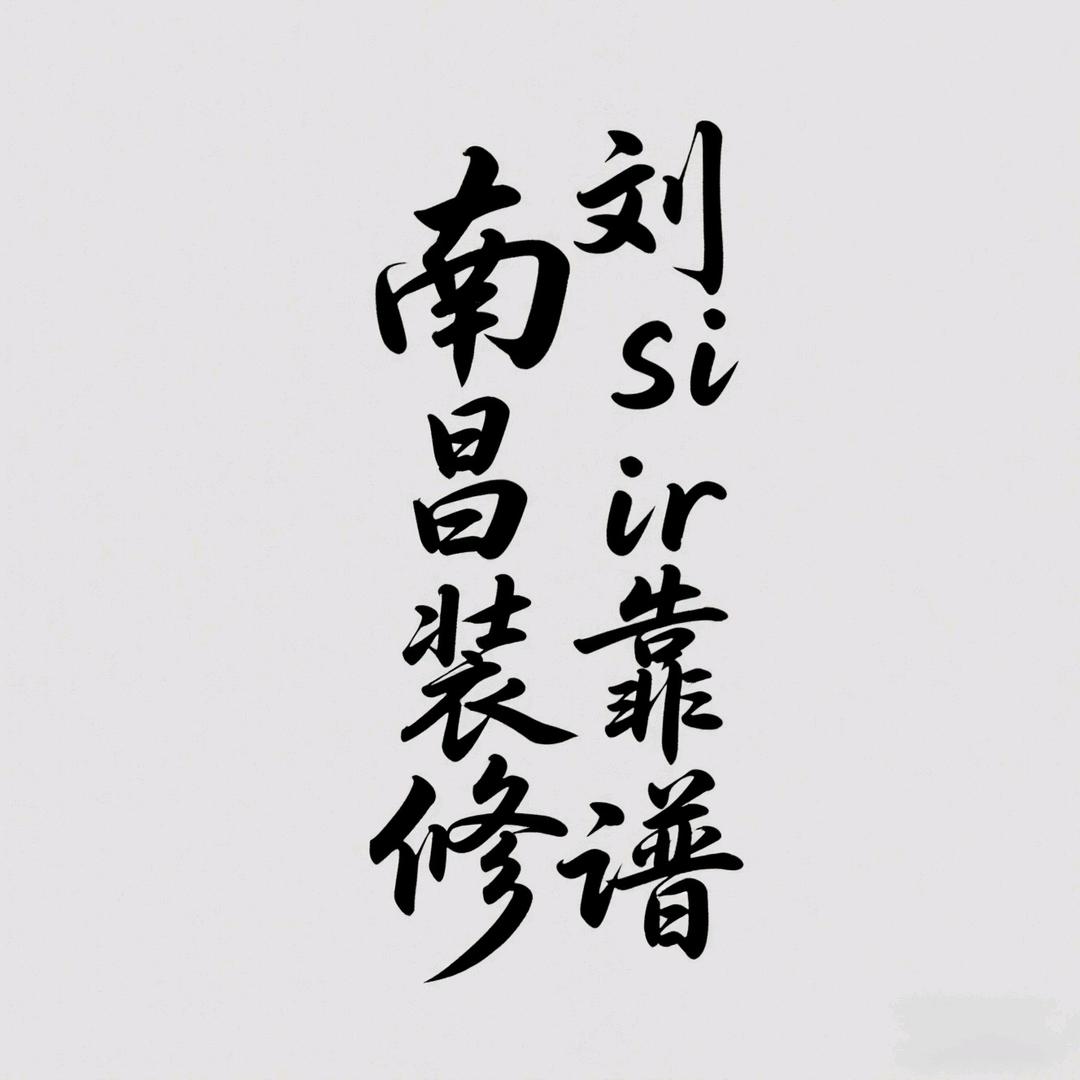 南昌装修
刘sir靠谱